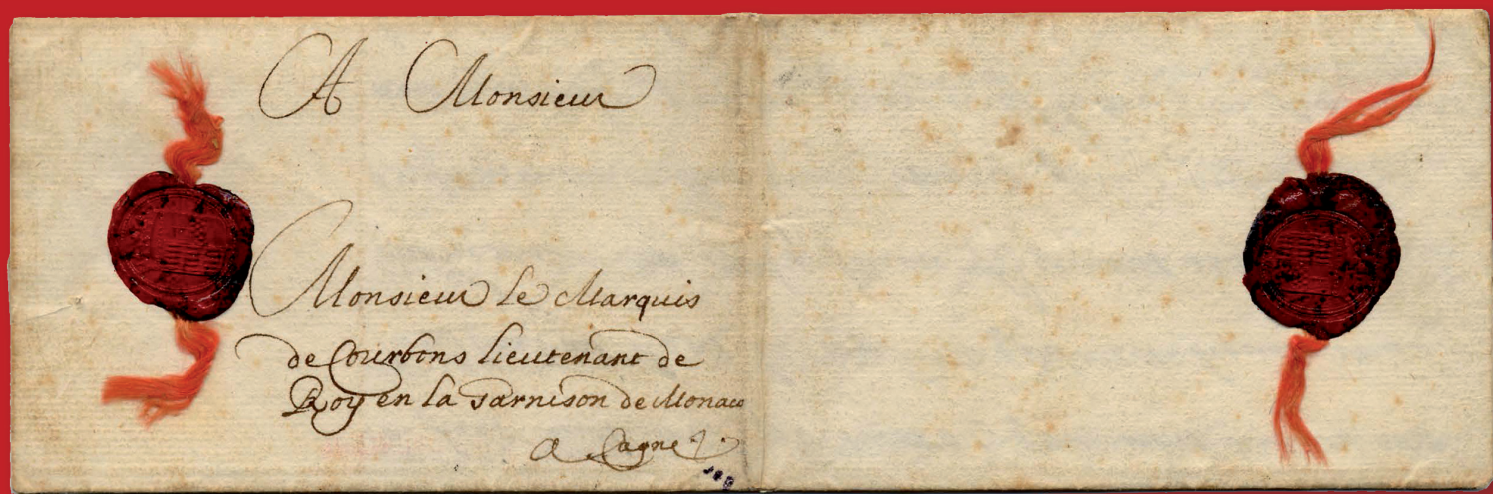 A Monsieur
Monsieur le Marquis
de Courbons lieutenant de
Roy en la garnison de Monaco
a Cagne